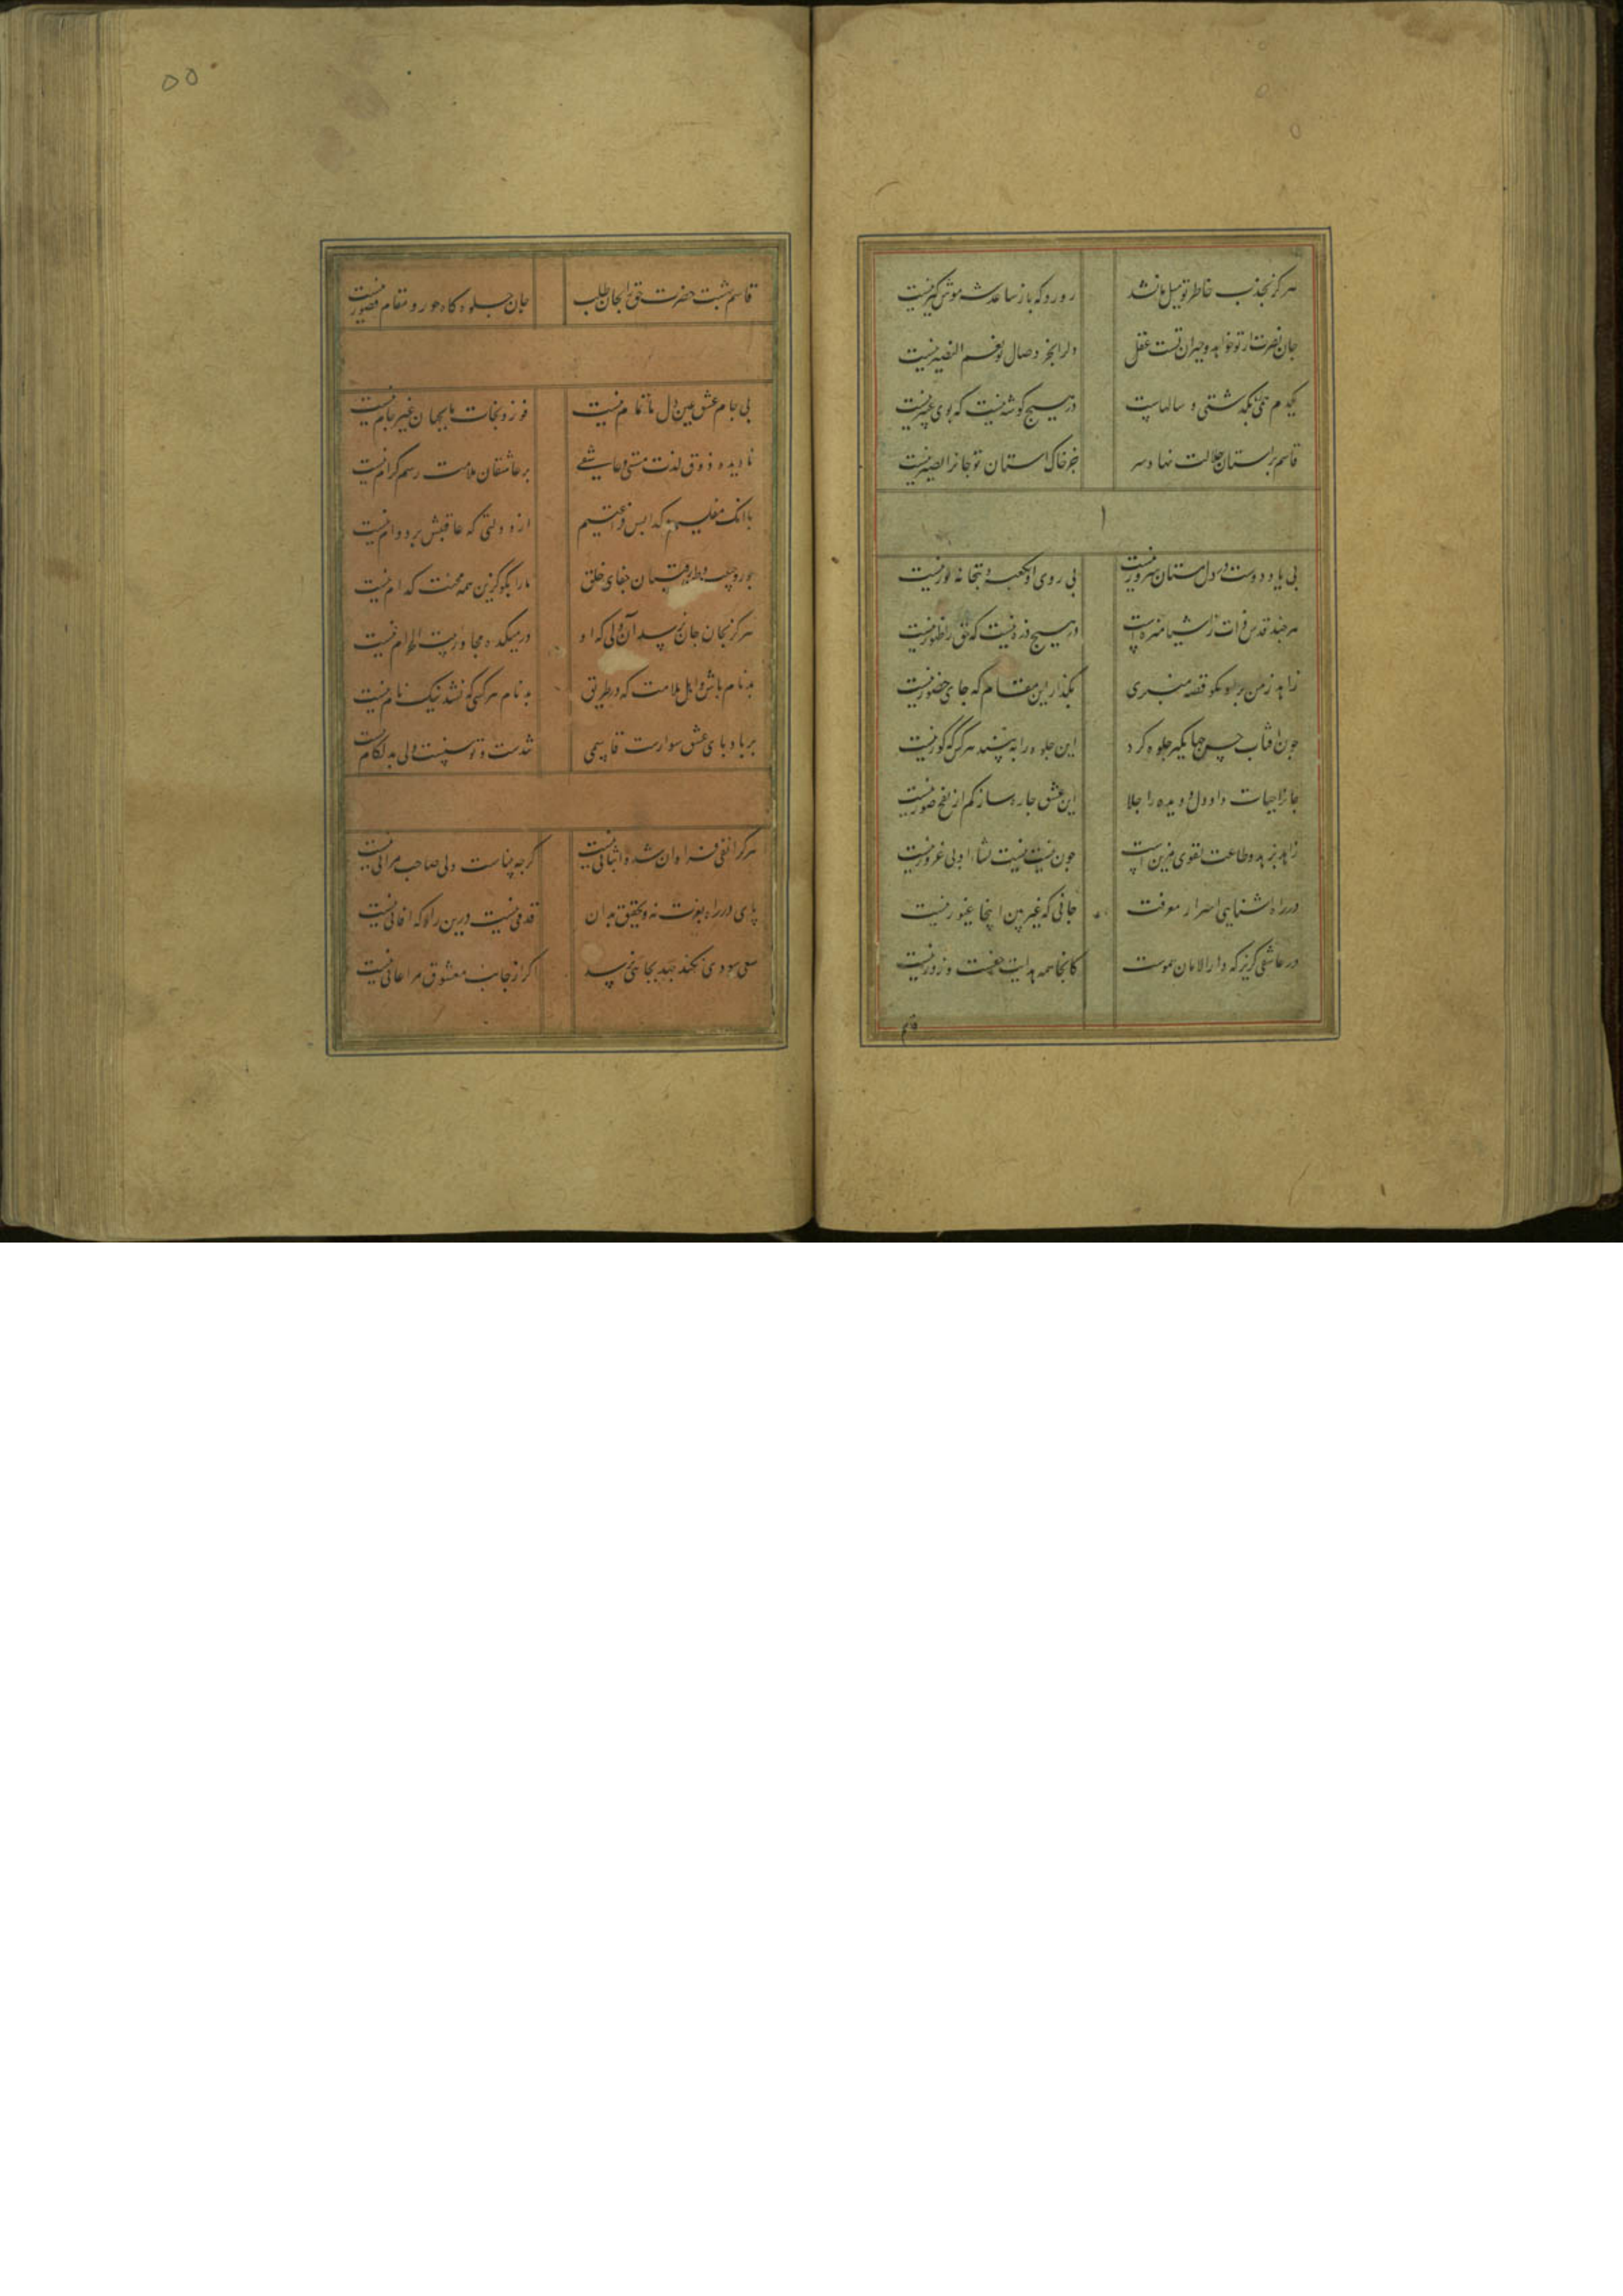 هرگز بجذب خاطر تو میل ما نشد
رو رو که باز ساعد شه موش گیر نیست
جان نصرت از تو خواهد و حیران تست عقل
دلرا بجز وصال تو نعم النصیر نیست
یکدم بگذشتی و سالهاست
در هیچ گوشه نیست که بوی عبیر نیست
قاسم بر استان جلالت نهاد سر
جز خاک استان تو جانرا نصیر نیست
بی یاد دوست در دل مستان سرور نیست
بی روی او بکعبه و بتخانه نور نیست
هر چند قدس ذات ز اشیا منزه است
در هیچ ذره نیست که حق را ظهور نیست
زاهد ز من برو مگو قصه منبری
بگذار این مقام که جای حضور نیست
چون افتاب حسن جهانگیر جلوه کرد
این جلوه را به بیند هر کس که کور نیست
جانرا حیات داد و دل و دیده را جلا
این عشق چاره ساز کم از نفخ صور نیست
زاهد بزهد و طاعت و تقوی مزین است
چون نیست نیست نشاء او بی غرور نیست
در راه شناسایی اسرار معرفت
جانی که غیر بین اینجا غیور نیست
در عاشقی گریز که دارالامان هموست
کانجا همه هدایت حقست و زور نیست
قاسم
٥٥
قاسم بهشت حضرت حق را بجان طلب
جان جلوه گاه حور و مقام قصور نیست
بی جام عشق عین دل ما تمام نیست
فوز و نجات ما بجهان غیر جام نیست
نادیده ذوق لذت مستی و عاشقی
بر عاشقان ملامت رسم کرام نیست
با انک مفلسیم گدایی و فراغتیم
از دولتی که عاقبتش بر دوام نیست
جور حبیب و طعن رقیبان جفای خلق
ما را بگو کزین همه محنت کدام نیست
هرگز بجان جان نرسد آن دلی که او
در میکده مجاور بیت الحرام نیست
بدنام باش و اهل ملامت که در طریق
بدنام هر کسی که نشد نیک نام نیست
بر بادپای عشق سوارست قاسمی
تندست و توسنست ولی بد لگام نیست
هر کرا نفی فراوان شد و اثباتی نیست
گرچه بیناست ولی صاحب مراتی نیست
پای در راه بنوت نه و تحقیق بدان
قدمی نیست درین راه که افاتی نیست
سعی سودی نکند جهد بجایی نرسد
اگر از جانب معشوق مراعاتی نیست